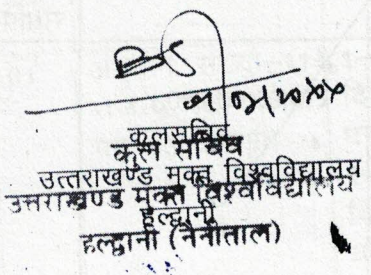 कुलसचिव
कुल सचिव
उत्तराखण्ड मुक्त विश्वविद्यालय
उत्तराखण्ड मुक्त विश्वविद्यालय
हल्द्वानी
हल्द्वानी (नैनीताल)